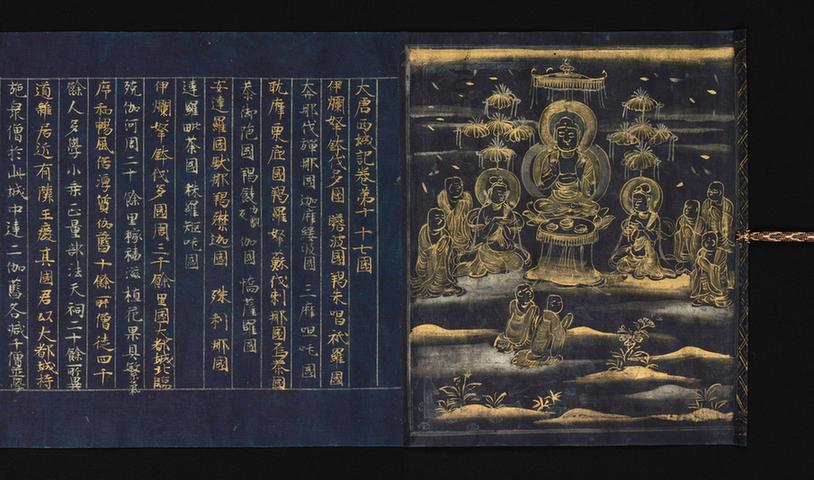 大唐西域記卷第十 十七國
伊爛拏鉢伐多國 瞻波國 羯朱嗢祇羅國
奔那伐彈那國 迦摩縷波國 三摩呾吒國
耽摩栗底國 羯羅拏蘇伐剌那國 烏荼國
恭御陀國 羯 伽國 憍薩羅國
安達羅國 馱那羯磔迦國 珠利耶國
達羅毗荼國 秣羅矩吒國
伊爛拏鉢伐多國周三千餘里國大都城北臨
殑伽河周二十餘里稼穡滋植花果具繁氣
序和暢風俗淳質伽藍十餘所僧徒四千
餘人多學小乘正量部法天祠二十餘所異
道雜居近有隣王廢其國君以大都城持
施衆僧於此城中建二伽藍各減千僧並學